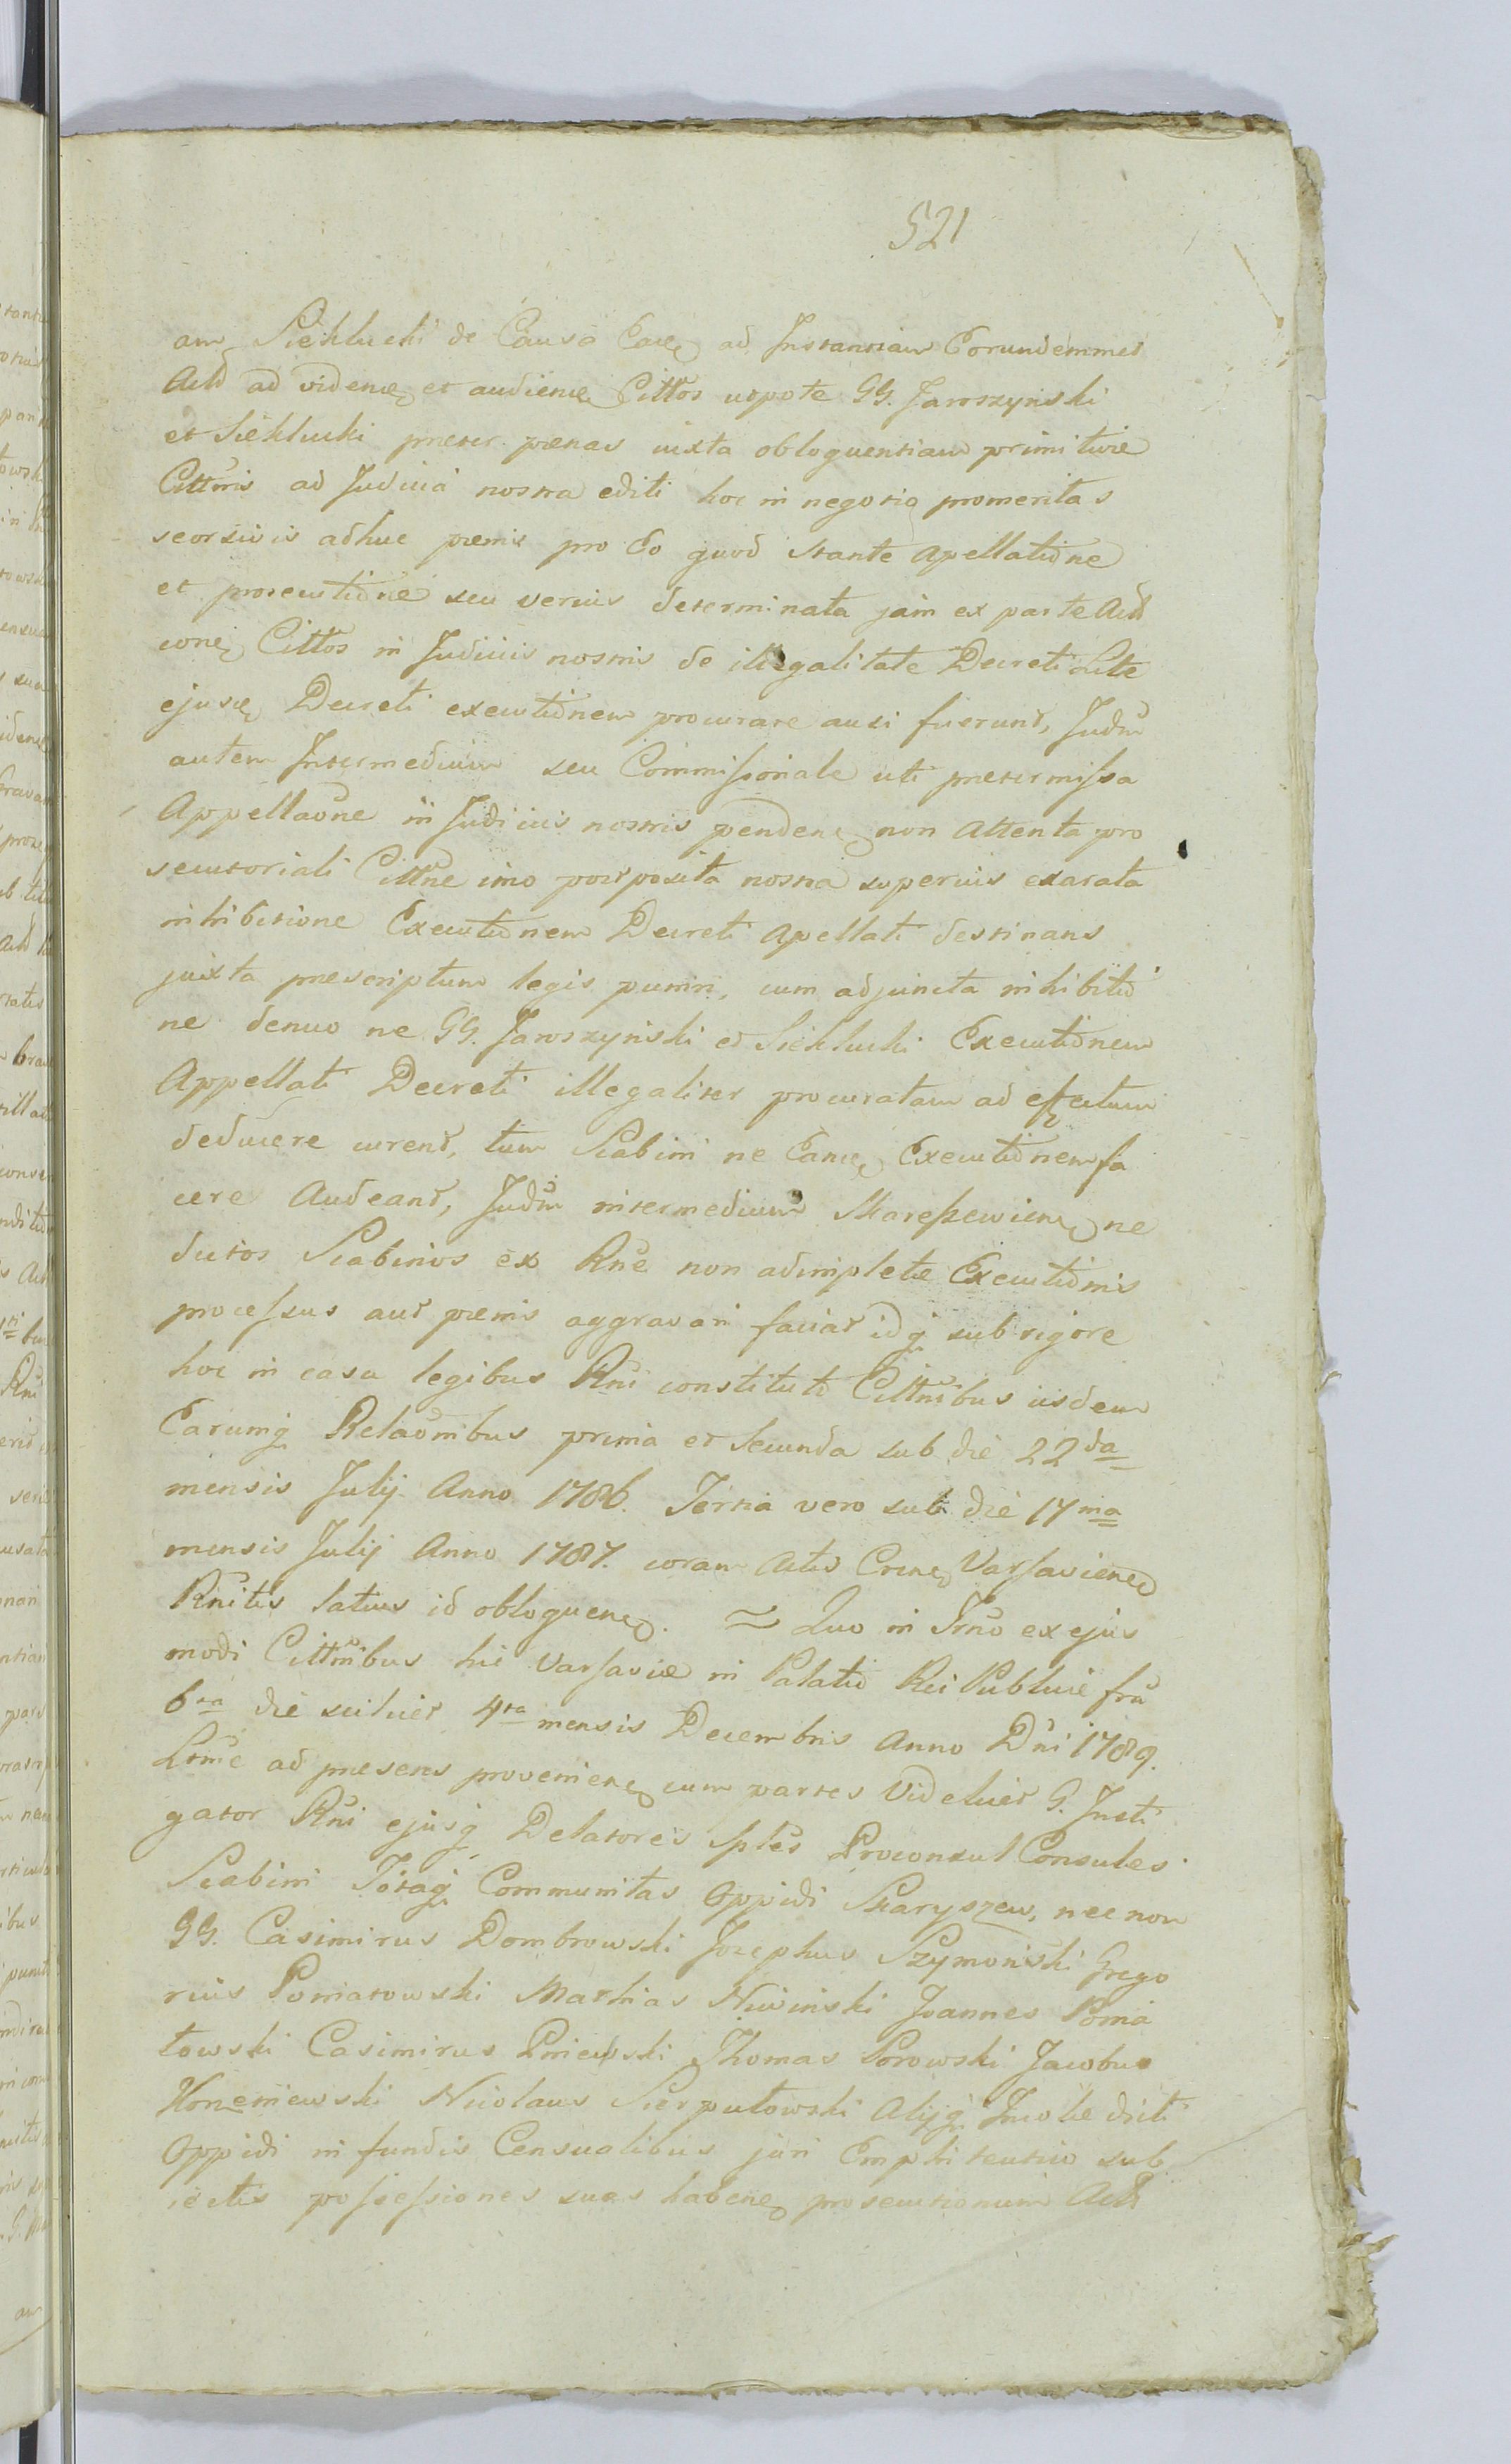 521
am Siekłucki de Causa Eade ad Instantiam Eorundemmet
Act ad videnđ et audienđ Cittos utpote GG. Jaroszyński
et Siekłucki preter pœnas iuxta obloquentiam primitivæ
Cittnis ad Judicia nostra editi hoc in negotio promeritas
seorsivis adhuc pœnis pro Eo quod stante Apellatiōne
et prosecutiōne seu verius determinata jam ex parte Act
cone Cittos in Judiciis nostris de illegalitate Decreti Lite
ejusđ Decreti executiōnem procurare ausi fuerunt, Judm
autem Intermedium seu Commissoriale uti pretermissa
Appellaōne in Judiciis nostris pendenđ non Attenta pro
secutoriali Cittne imo postposita nostra superius exarata
inhibitione Executiōnem Decreti Apellati destinans
juxta prescriptum legis puniri, cum adjuncta inhibitio
ne denuo ne GG. Jaroszyński et Siekłucki Executiōnem
Appellati Decreti illegaliter procuratam ad effectum
deducere curent, tum Scabini ne Eande Executiōnem fa
cere Audeant, Judm intermedium ne
dictos Scabinos ex Rne non adimpletæ Executiōnis
processus aut pœnis aggravari faciat idq sub rigore
hoc in casu legibus Rni constituto Cittnibus iisdem
Earumq Relaōnibus prima et secunda sub die 22da
mensis Julij Anno 1786. Tertia vero sub die 17ma
mensis Julij Anno 1787. coram Actis Varsavienđ
Rnitis latius id obloquenđ. ~ Quo in Trno ex ejus
modi Cittnibus hic Varsaviæ in Palatio Rei Publicæ fru
6ta die scilicet 4ta mensis Decembris Anno Dni 1789.
Ltme ad presens provenienđ cum partes Videlicet G. Insti
gator Rni ejusq Delatores Sples Proconsul Consules
Scabini Totaq Communitas Oppidi Skaryszew, nec non
GG. Casimirus Dombrowski Josephus Szymoński Grego
rius Poniatowski Mathias Niwiński Joannes Ponia
towski Casimirus Pniewski Thomas Porowski Jacobus
Nicolaus Sierputowski Alijq Incolæ dicti
Oppidi in fundis Censualibus juri Emphiteutico sub
iectis possessiones suas habenđ prosecutionum Act